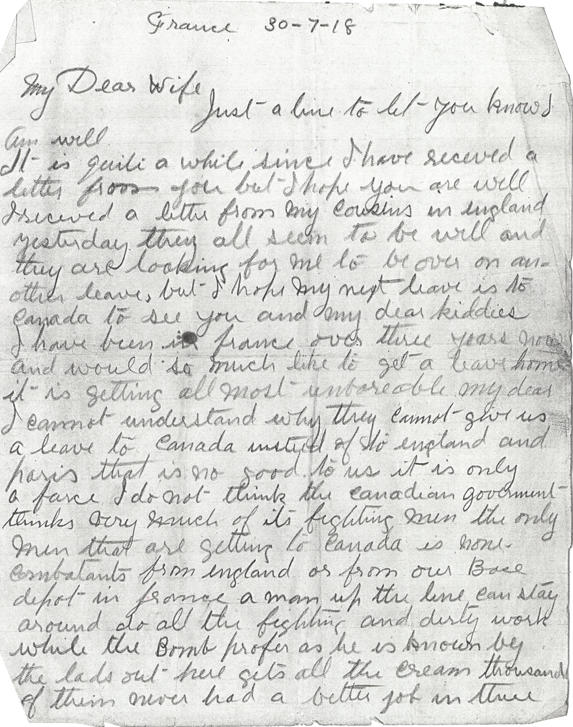 France 30-7-18
My Dear Wife
Just a line to let you know I
am well
It is quite a while since I have recieved a
letter from you but I hope you are well
I recieved a letter from my cousins in england
yesterday they all seem to be well and
they are looking for me to be over on an-
other leave, but I hope my next leave is to
Canada to see you and my dear kiddies
I have been in france over three years now
and would so much like to get a leave home
it is getting all most unbareable my dear
I cannot understand why they cannot give us
a leave to Canada instead of to england and
paris that is no good to us it is only
a farce I do not think the canadian goverment
thinks very much of its fighting men the only
men that are getting to Canada is none-
combatants from england or from our Base
depot in france a man up the line can stay
around do all the fighting and dirty work
while the Bomb profer as he is known by
the lads out here gets all the cream thousands
of them never had a better job in there